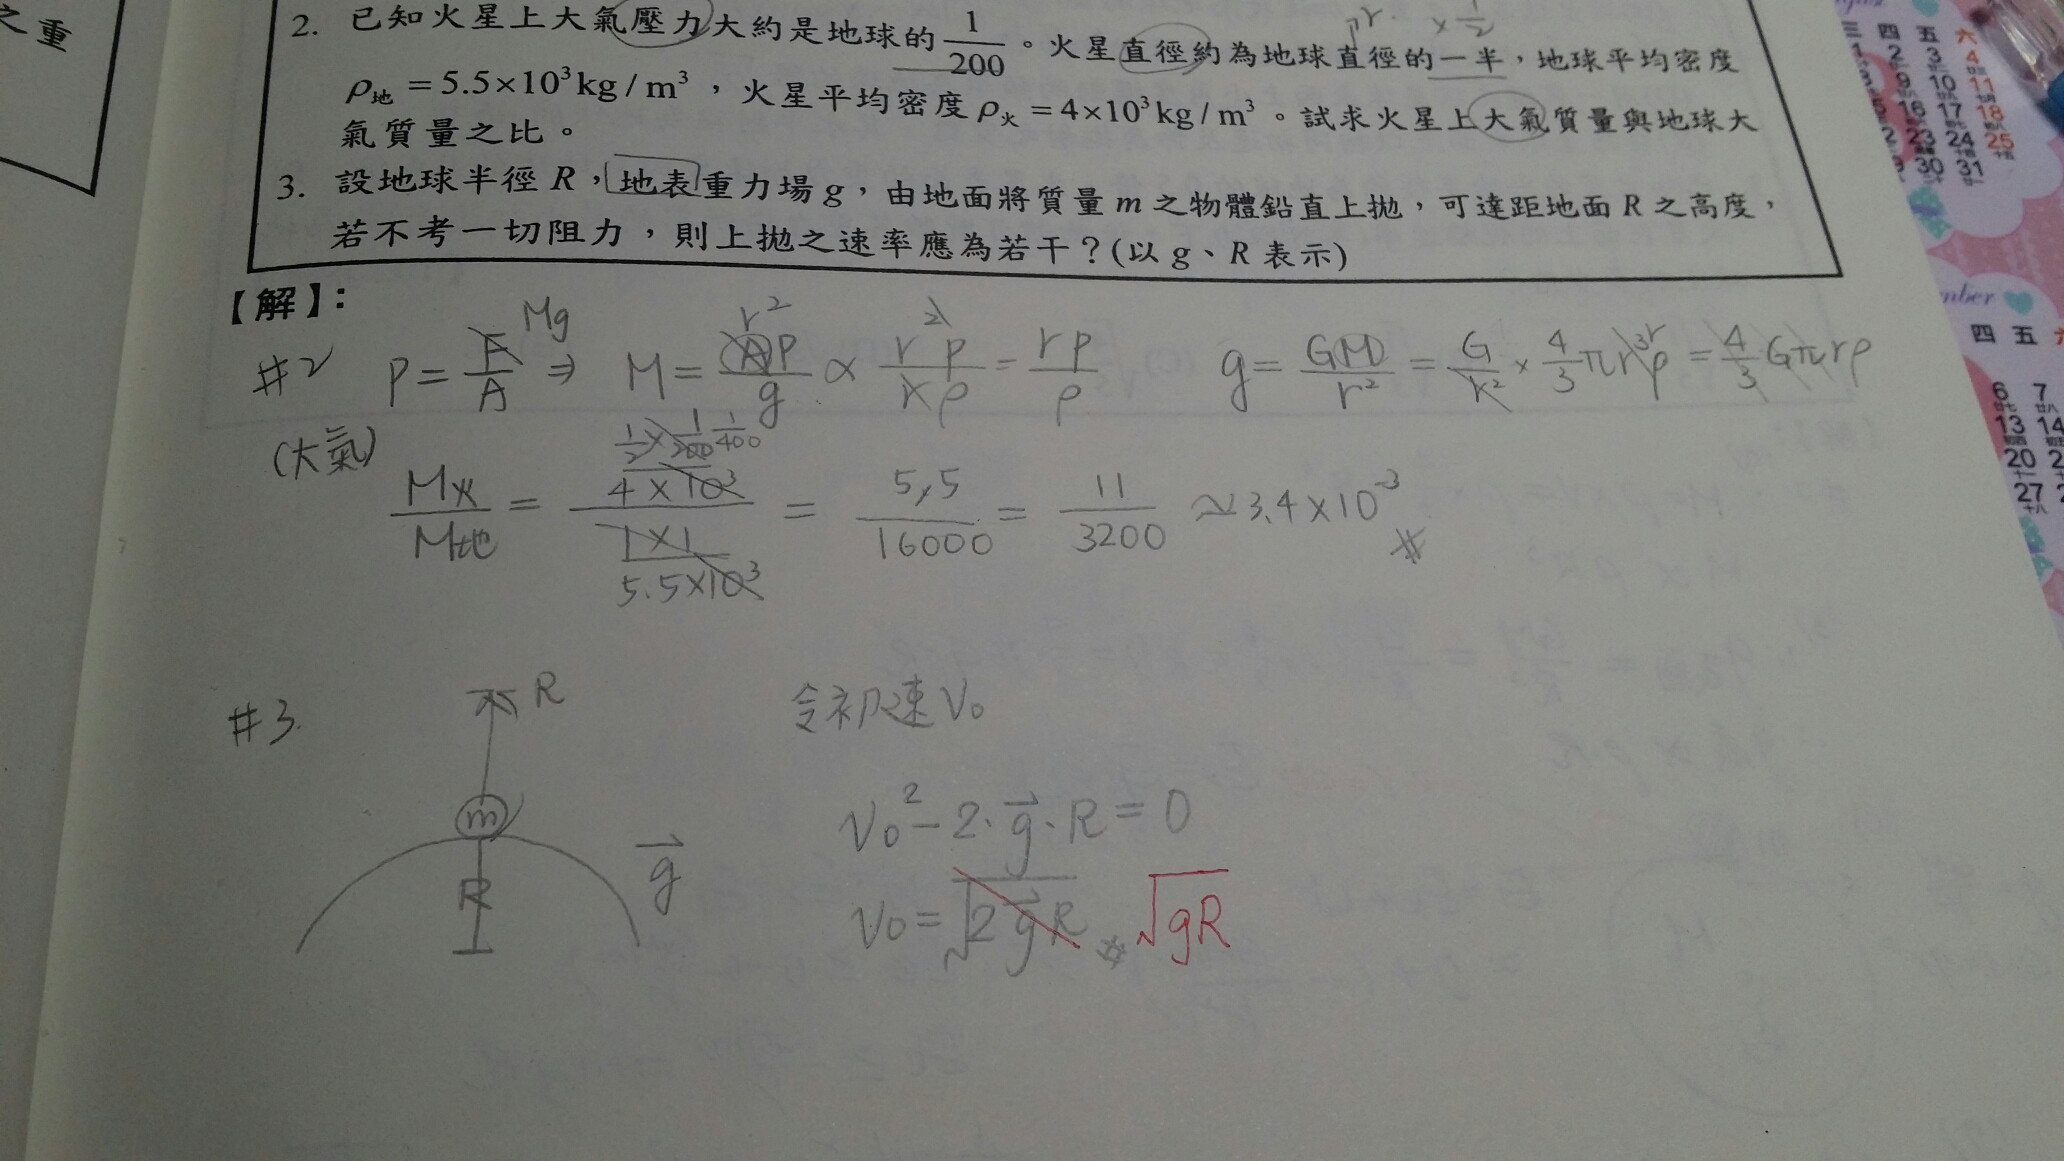 之重
2. 已知火星上大氣壓力大約是地球的 1/200 。火星直徑約為地球直徑的一半，地球平均密度
ρ地 = 5.5×10³ kg / m³ ，火星平均密度 ρ火 = 4×10³ kg / m³ 。試求火星上大氣質量與地球大
氣質量之比。
3. 設地球半徑 R，地表重力場 g，由地面將質量 m 之物體鉛直上拋，可達距地面 R 之高度，
若不考一切阻力，則上拋之速率應為若干？(以 g、R 表示)
× 1/2
【解】：
#2 P = F/A Mg ⇒ M = AP/g r² ∝ r²P/rρ = rP/ρ g = GM/r² = G/r² × 4/3 πr³ρ r = 4/3 Gπrρ
(大氣)
M火/M地 = (1/2 × 1/200 1/400 / 4×10³) / (1×1 / 5.5×10³) = 5.5/16000 = 11/3200 ≈ 3.4×10⁻³ #
#3. R 令初速 V₀
m
V₀² − 2·g⃗·R = 0
R g⃗
V₀ = √2g⃗R # √gR
三 四 五 六
2 3 4
9 10 11
16 17 18
23 24 25
30 31
mber
四 五
6 7
13 14
20
27